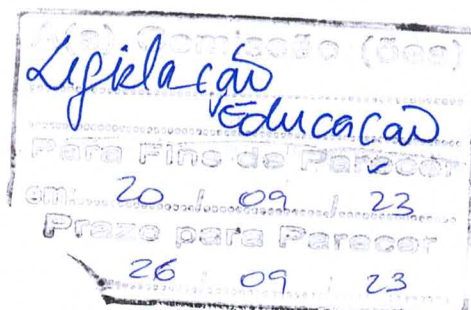 À(s) Comissão (ões)
Legislação
Educação
Para Fins de Parecer
em: 20 / 09 / 23
Prazo para Parecer
26 / 09 / 23